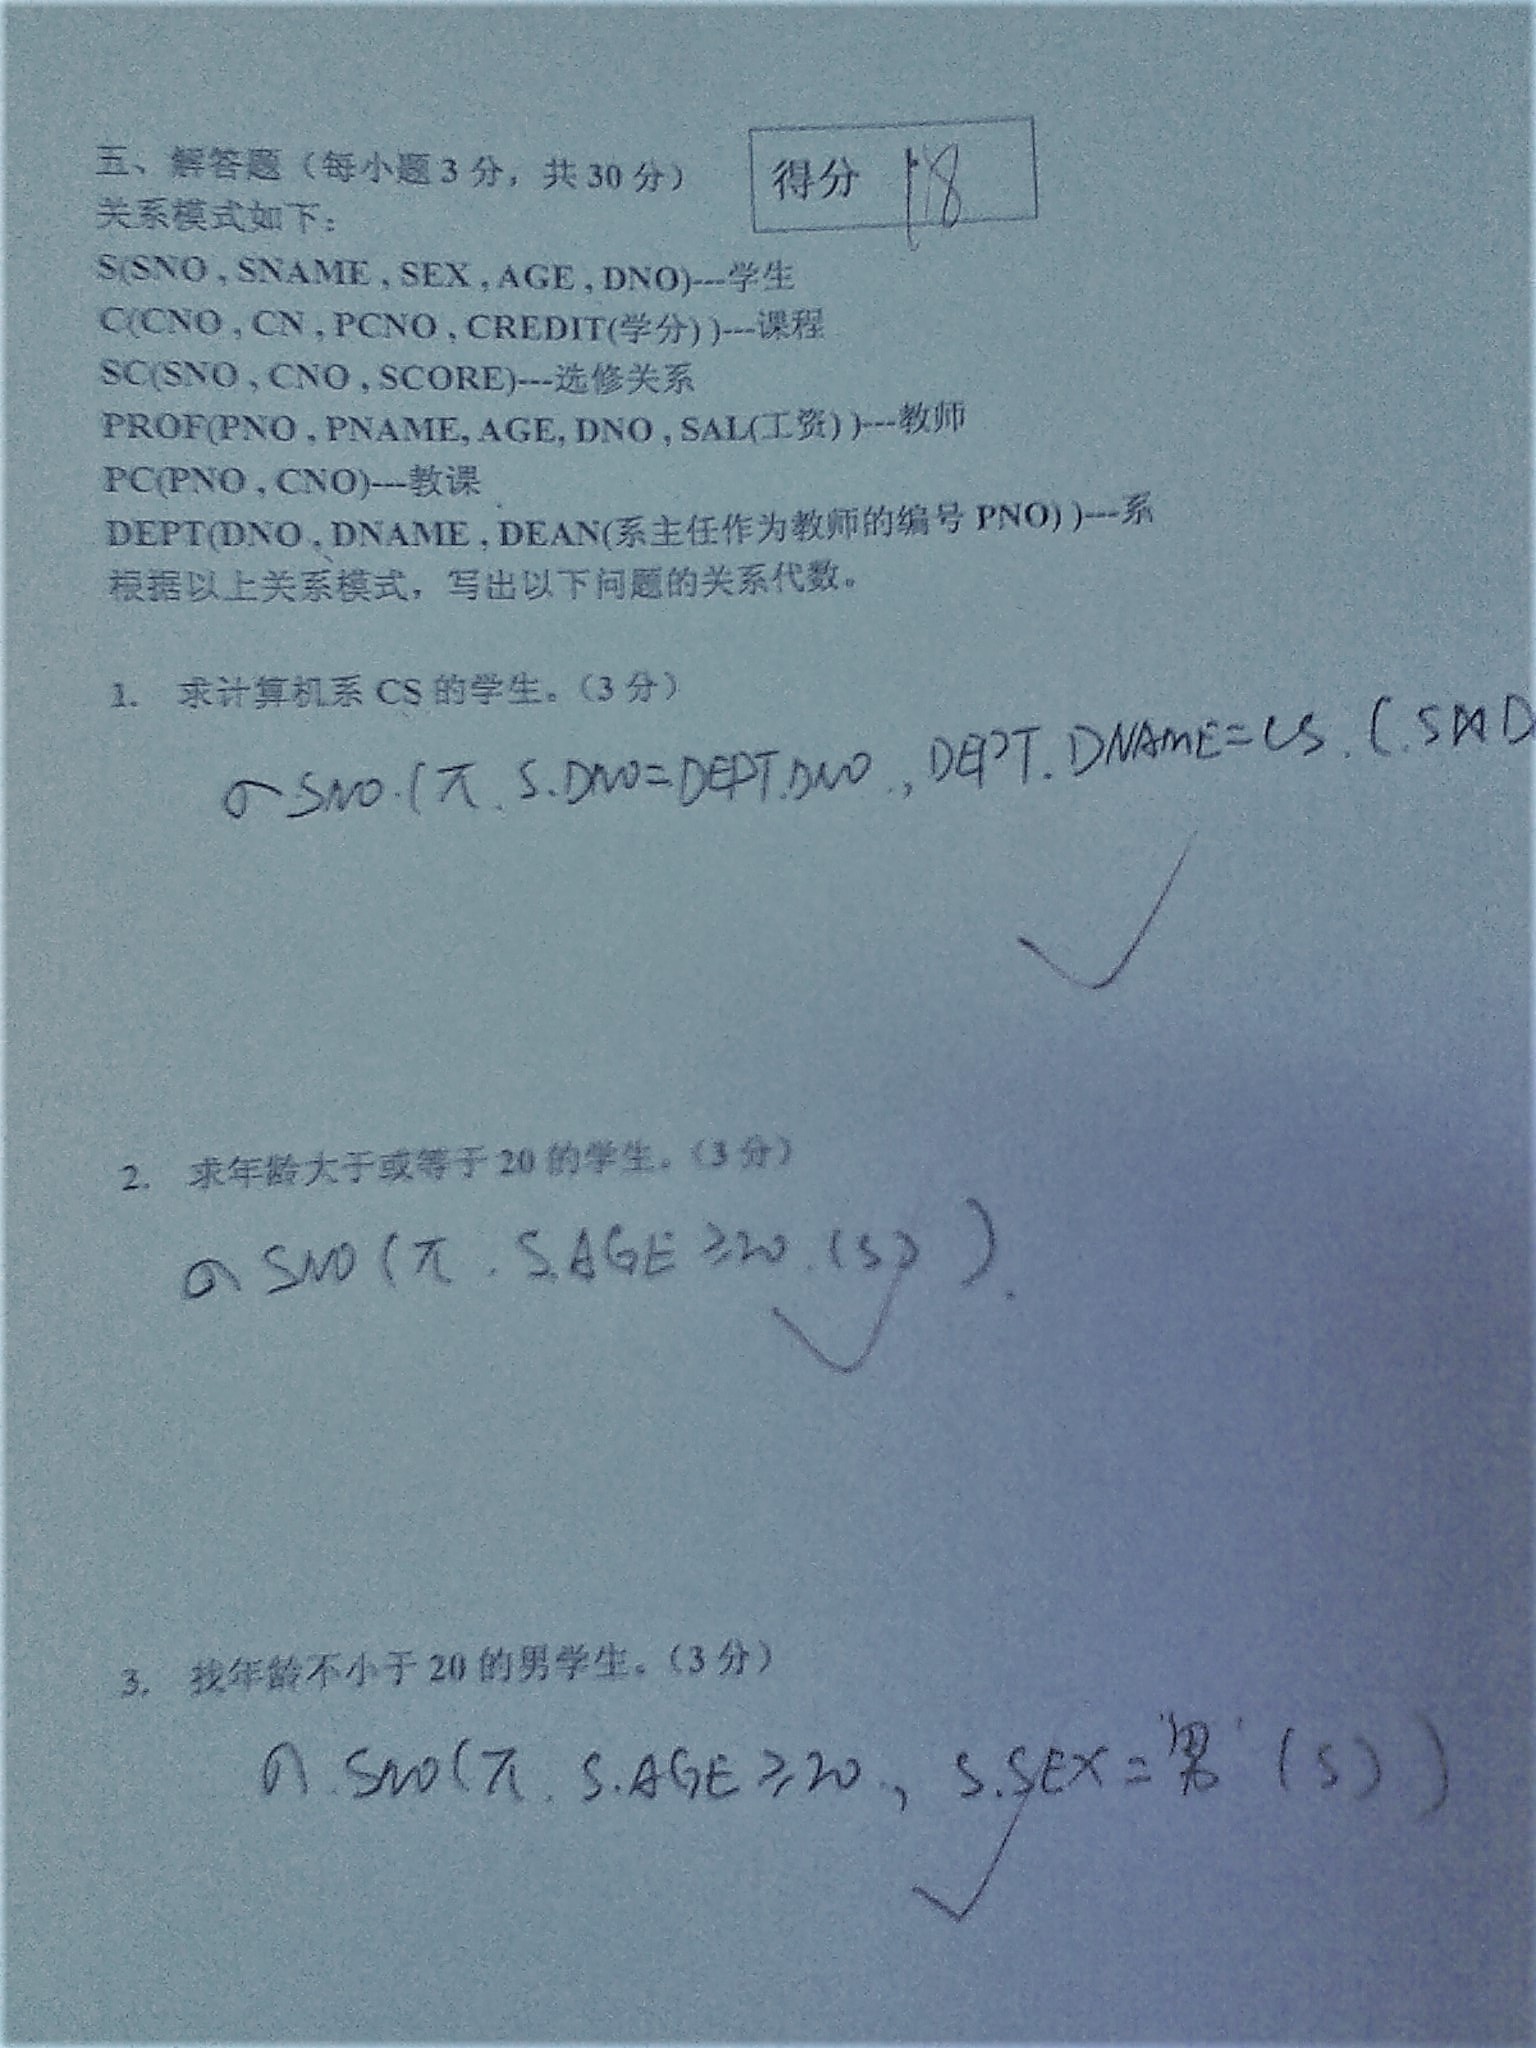 五、解答题（每小题3分，共30分）
得分 18
关系模式如下：
S(SNO , SNAME , SEX , AGE , DNO)---学生
C(CNO , CN , PCNO , CREDIT(学分) )---课程
SC(SNO , CNO , SCORE)---选修关系
PROF(PNO , PNAME, AGE, DNO , SAL(工资) )---教师
PC(PNO , CNO)---教课
DEPT(DNO , DNAME , DEAN(系主任作为教师的编号 PNO) )---系
根据以上关系模式，写出以下问题的关系代数。
1. 求计算机系 CS 的学生。（3 分）
σ SNO (π S.DNO=DEPT.DNO , DEPT.DNAME=CS (S⋈D
2. 求年龄大于或等于 20 的学生。（3 分）
σ SNO (π S.AGE ≥20 (S) )
3. 找年龄不小于 20 的男学生。（3 分）
σ SNO (π S.AGE ≥20 , S.SEX = '男' (S) )